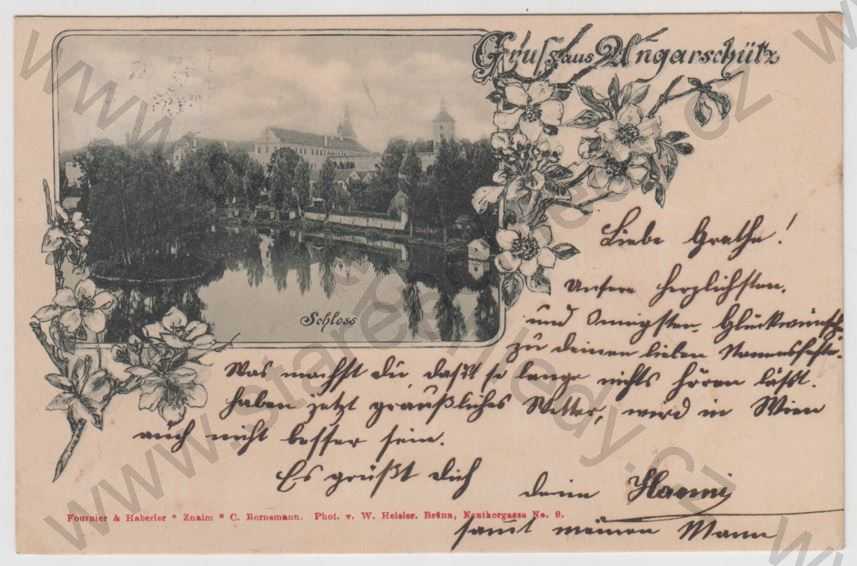 Gruss aus Ungarschütz
Schloss
Liebe Grethe!
Unsere herzlichsten,
und innigsten Glückwünsche
zu deinem lieben Namensfeste.
Was machst du, daßt so lange nichts hören läßt.
Haben jetzt gräußliches Wetter, wird in Wien
auch nicht besser sein.
Es grüßt dich
deine Hanni
samt meinen Mann
Fournier & Haberler * Znaim * C. Bornemann. Phot. v. W. Heisler. Brünn, No. 9.